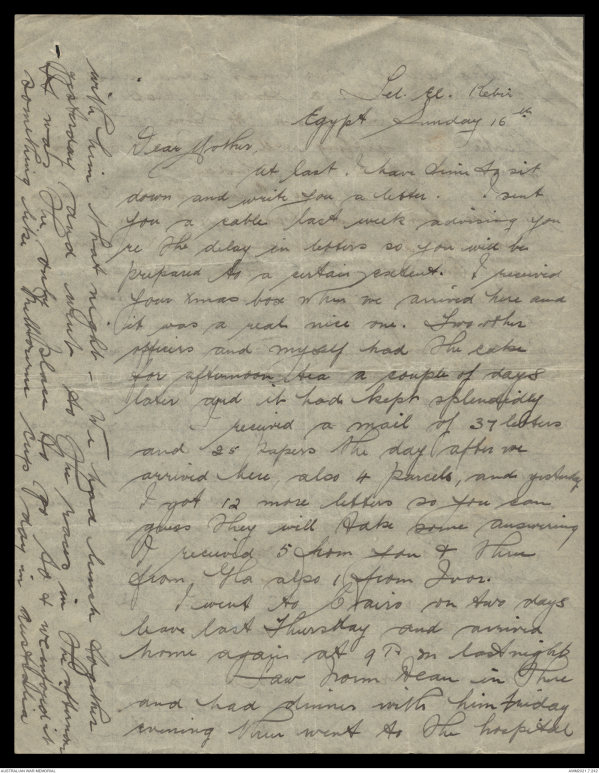 Tel. El. Kebir
Egypt Sunday 16th
Dear Mother,
At last I have time to sit
down and write you a letter. I sent
you a cable last week advising you
re the delay in letters so you will be
prepared to a certain extent. I received
your Xmas box when we arrived here and
it was a real nice one. Two other
officers and myself had the cake
for afternoon tea a couple of days
later and it had kept splendidly
I received a mail of 37 letters
and 25 papers the day after we
arrived here, also 4 parcels, and yesterday
I got 12 more letters so you can
guess they will take some answering
I received 5 from you & three
from Ila also 1 from Ivor.
I went to Cairo on two days
leave last Thursday and arrived
home again at 9 P.m last night
Saw Norm Dean in there
and had dinner with him Friday
evening then went to the hospital
with him that night - We had lunch together
yesterday and went to the races in the afternoon
- It was the only place to go to & we enjoyed it
something like Melbourne Cup day in Australia
AUSTRALIAN WAR MEMORIAL